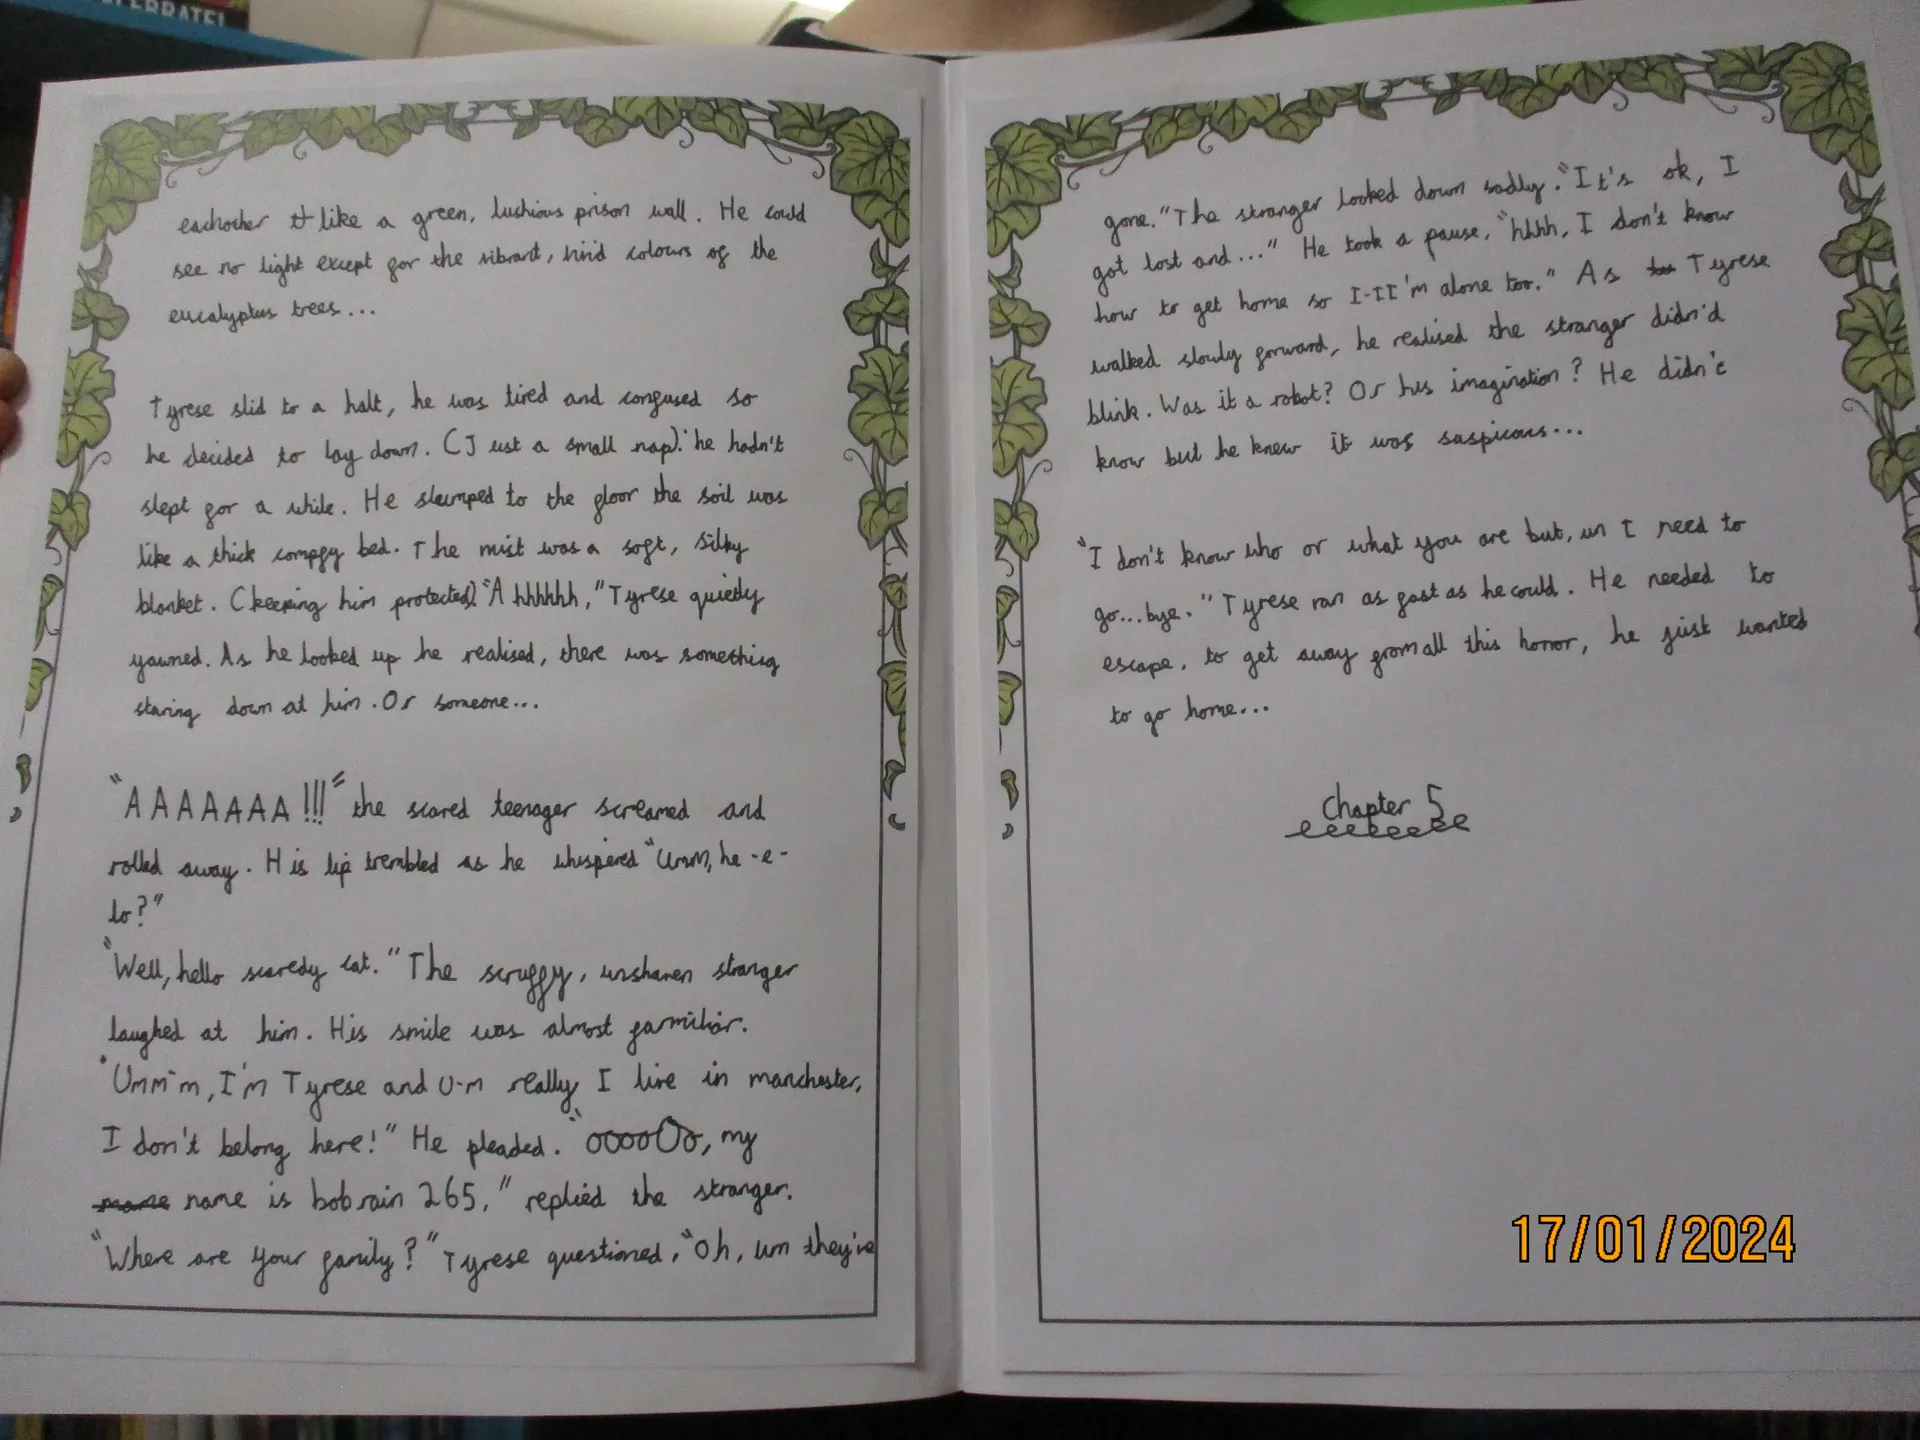 CELEBRATE!
eachother & like a green, lushious prison wall. He could
see no light except for the vibrant, vivid colours of the
eucalyptus trees...
Tyrese slid to a halt, he was tired and confused so
he decided to lay down. (Just a small nap). he hadn't
slept for a while. He slumped to the floor the soil was
like a thick compfy bed. The mist was a soft, silky
blanket. (keeping him protected). "Ahhhhhh," Tyrese quietly
yawned. As he looked up he realised, there was something
staring down at him. Or someone...
"AAAAAAA!!!" the scared teenager screamed and
rolled away. His lip trembled as he whispered "Umm, he-e-
lo?"
"Well, hello scaredy cat." The scruffy, unshaven stranger
laughed at him. His smile was almost farmiliar.
"Umm-m, I'm Tyrese and U-m really I live in manchester,
I don't belong here!" He pleaded. "ooooOo, my
name is bobrain 265," replied the stranger.
"Where are your family?" Tyrese questioned, "Oh, um they're
gone." The stranger looked down sadly. "It's ok, I
got lost and..." He took a pause, "hhhh, I don't know
how to get home so I-II'm alone too." As Tyrese
walked slowly forward, he realised the stranger didn'd
blink. Was it a robot? Or his imagination? He didn't
know but he knew it was suspicous...
"I don't know who or what you are but, um I need to
go...bye." Tyrese ran as fast as he could. He needed to
escape, to get away from all this horror, he just wanted
to go home...
Chapter 5
17/01/2024